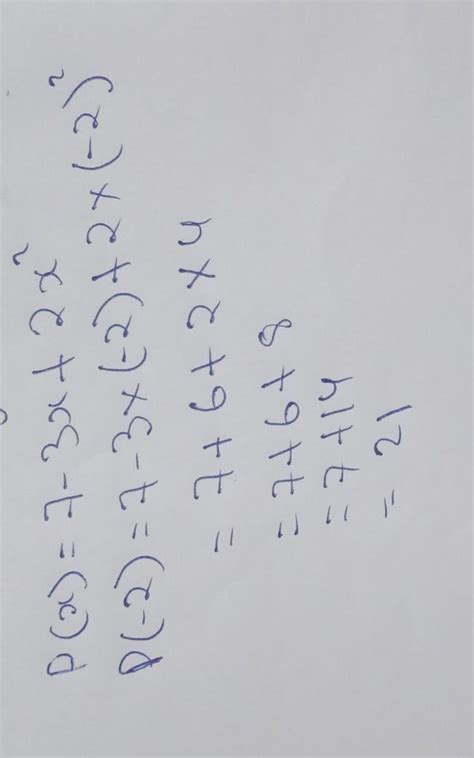 P(x) = 7-3x+2x²
P(-2) = 7-3x(-2)+2x(-2)²
= 7+6+2x4
= 7+6+8
= 7+14
= 21